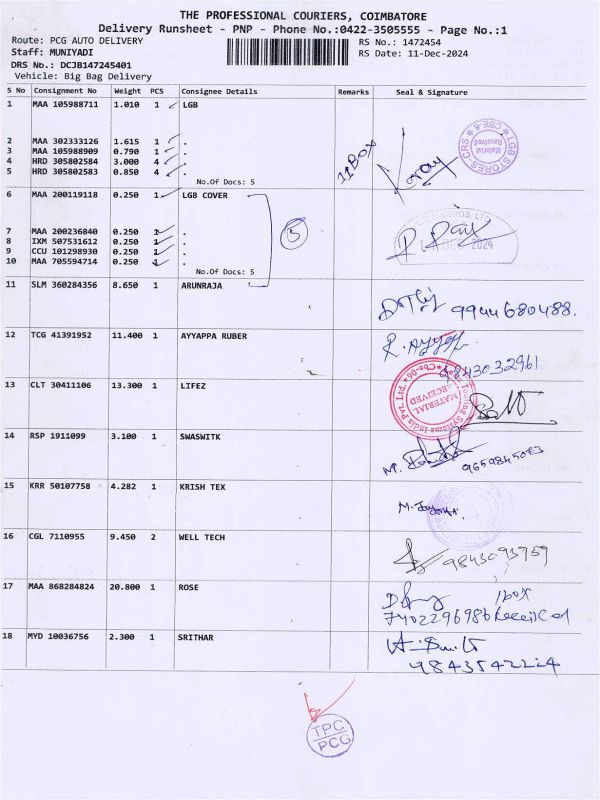 THE PROFESSIONAL COURIERS, COIMBATORE
Delivery Runsheet - PNP - Phone No.:0422-3505555 - Page No.:1
Route: PCG AUTO DELIVERY
Staff: MUNIYADI
DRS No.: DCJB147245401
Vehicle: Big Bag Delivery
RS No.: 1472454
RS Date: 11-Dec-2024
S No Consignment No Weight PCS Consignee Details Remarks Seal & Signature
1 MAA 105988711 1.010 1 LGB
2 MAA 302333126 1.615 1 .
3 MAA 105988909 0.790 1 .
4 HRD 305802584 3.000 4 .
5 HRD 305802583 0.850 4 .
No.Of Docs: 5
11 BOX
LGB STORES-CRS
Material Received
CBE-6
6 MAA 200119118 0.250 1 LGB COVER
7 MAA 200236840 0.250 1 .
8 IXM 507531612 0.250 1 .
9 CCU 101298930 0.250 1 .
10 MAA 705594714 0.250 1 .
No.Of Docs: 5
5
2024
11 SLM 360284356 8.650 1 ARUNRAJA
9944680488.
12 TCG 41391952 11.400 1 AYYAPPA RUBER
9843032961
13 CLT 30411106 13.300 1 LIFEZ
MATERIAL RECEIVED
14 RSP 1911099 3.100 1 SWASWITK
15 KRR 50107758 4.282 1 KRISH TEX
16 CGL 7110955 9.450 2 WELL TECH
9843093759
17 MAA 868284824 20.800 1 ROSE
1box
7402296986 Received
18 MYD 10036756 2.300 1 SRITHAR
TPC
PCG